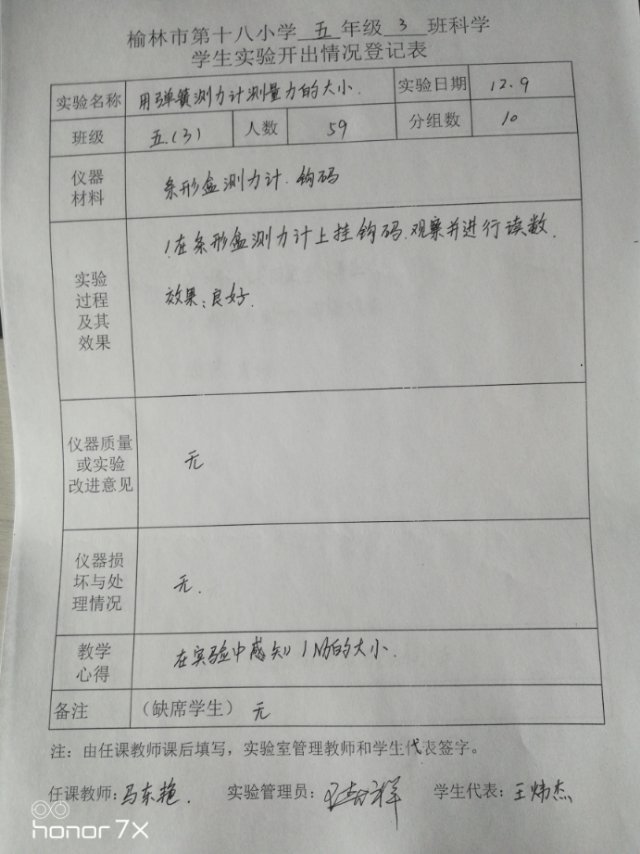 榆林市第十八小学 五 年级 3 班科学
学生实验开出情况登记表
实验名称 用弹簧测力计测量力的大小. 实验日期 12.9
班级 五.(3) 人数 59 分组数 10
仪器
材料
条形盒测力计.钩码
1.在条形盒测力计上挂钩码.观察并进行读数.
效果:良好.
实验
过程
及其
效果
仪器质量
或实验
改进意见
无
仪器损
坏与处
理情况
无.
教学
心得
在实验中感知1N的大小.
备注 (缺席学生) 无
注:由任课教师课后填写,实验室管理教师和学生代表签字。
任课教师:马东艳. 实验管理员: 学生代表:王炜杰
honor 7X